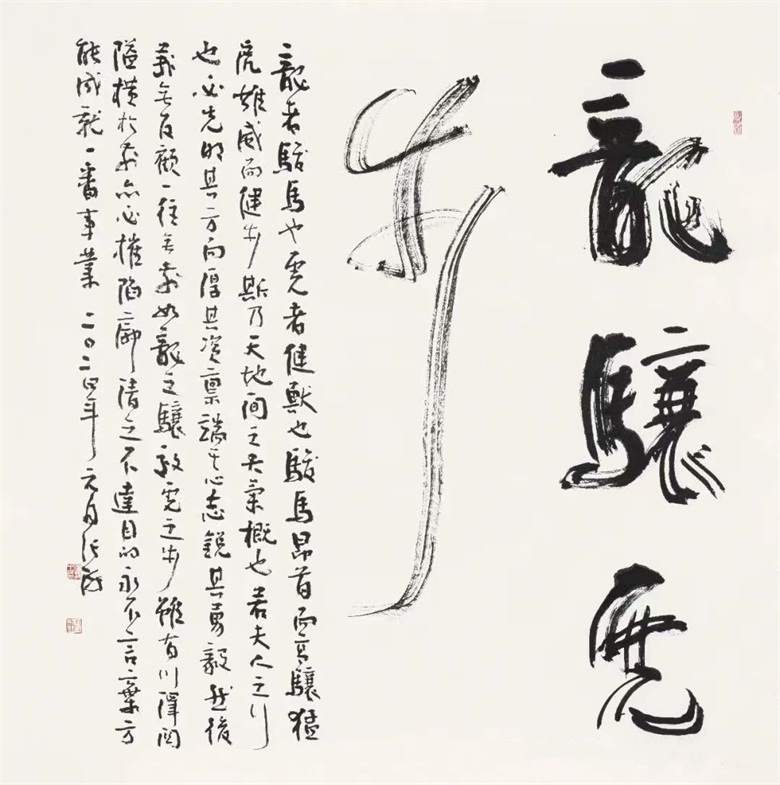 龍驤虎
步
龍者駿馬也虎者健獸也駿馬昂首而驤猛
虎雄威而健步斯乃天地間之大氣概也若夫人之行
也必先明其方向厚其資禀端其心志銳其勇毅然後
義無反顧一往無前如龍之驤放虎之步雖有川澤關
隘橫於前亦必摧陷廓清之不達目的永不言棄方
能成就一番事業 二〇二四年元月張